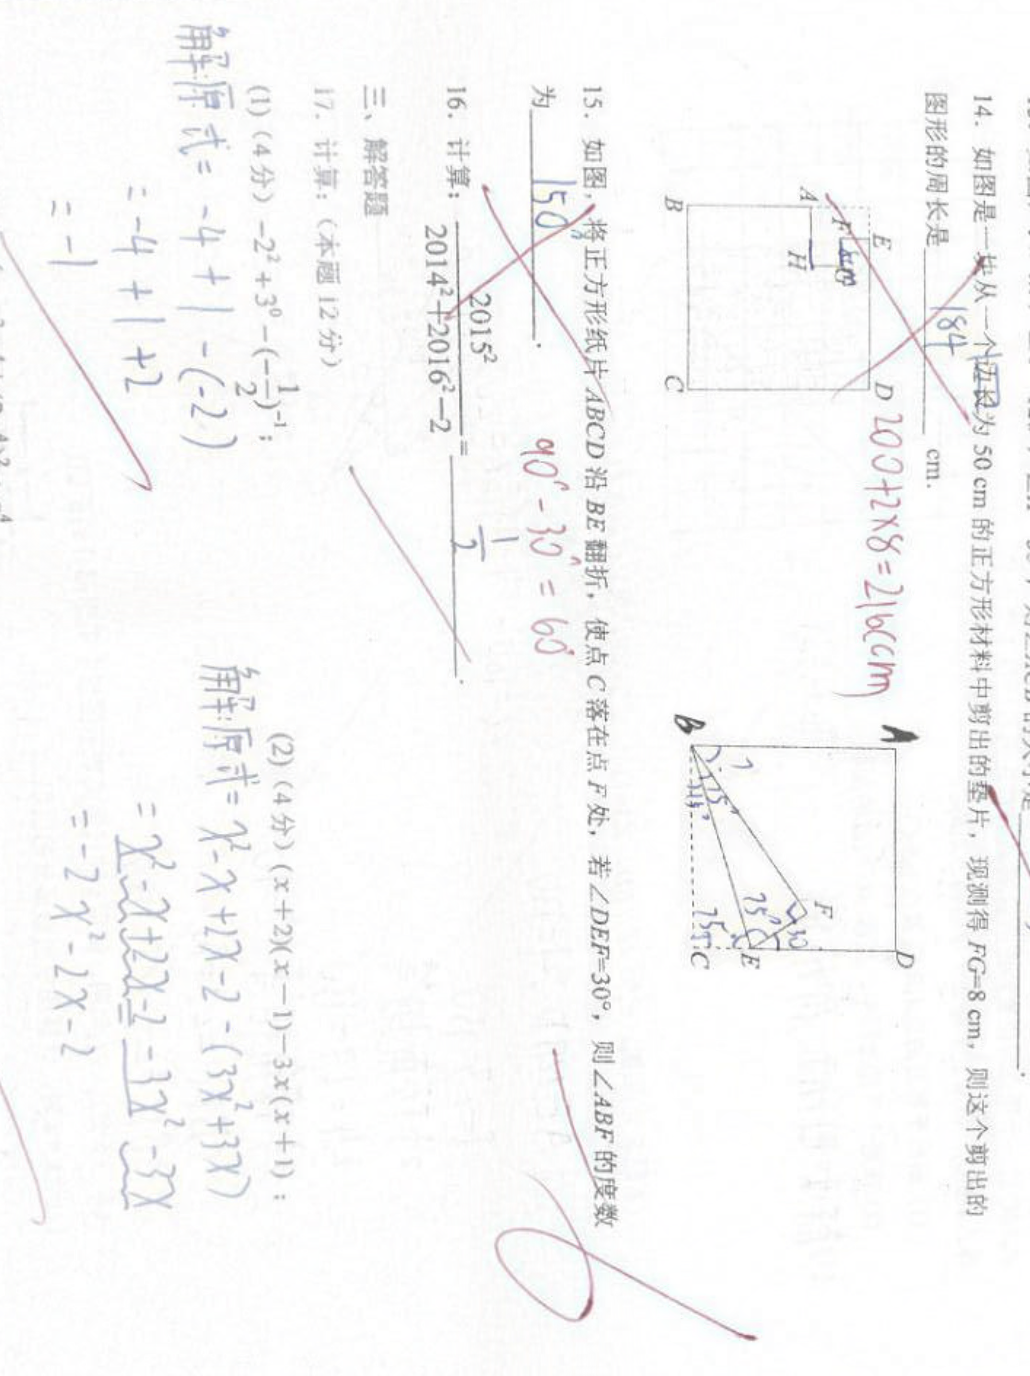 14. 如图是一块从一个边长为 50 cm 的正方形材料中剪出的垫片，现测得 FG=8 cm，则这个剪出的
图形的周长是 184 cm.
200+2×8=216(cm)
E D
F G
A H
B C
A D
F
30
E
75°
75°
15°
?
B C
15. 如图，将正方形纸片 ABCD 沿 BE 翻折，使点 C 落在点 F 处，若∠DEF=30°，则∠ABF 的度数
为 150° .
90°-30°=60°
16. 计算：2015²/(2014²+2016²-2)= 1/2 .
三、解答题
17. 计算：（本题 12 分）
(1)（4 分）-2²+3⁰-(-1/2)⁻¹；
解:原式=-4+1-(-2)
=-4+1+2
=-1
(2)（4 分）(x+2)(x-1)-3x(x+1)；
解:原式=x²-x+2x-2-(3x²+3x)
=x²-x+2x-2-3x²-3x
=-2x²-2x-2